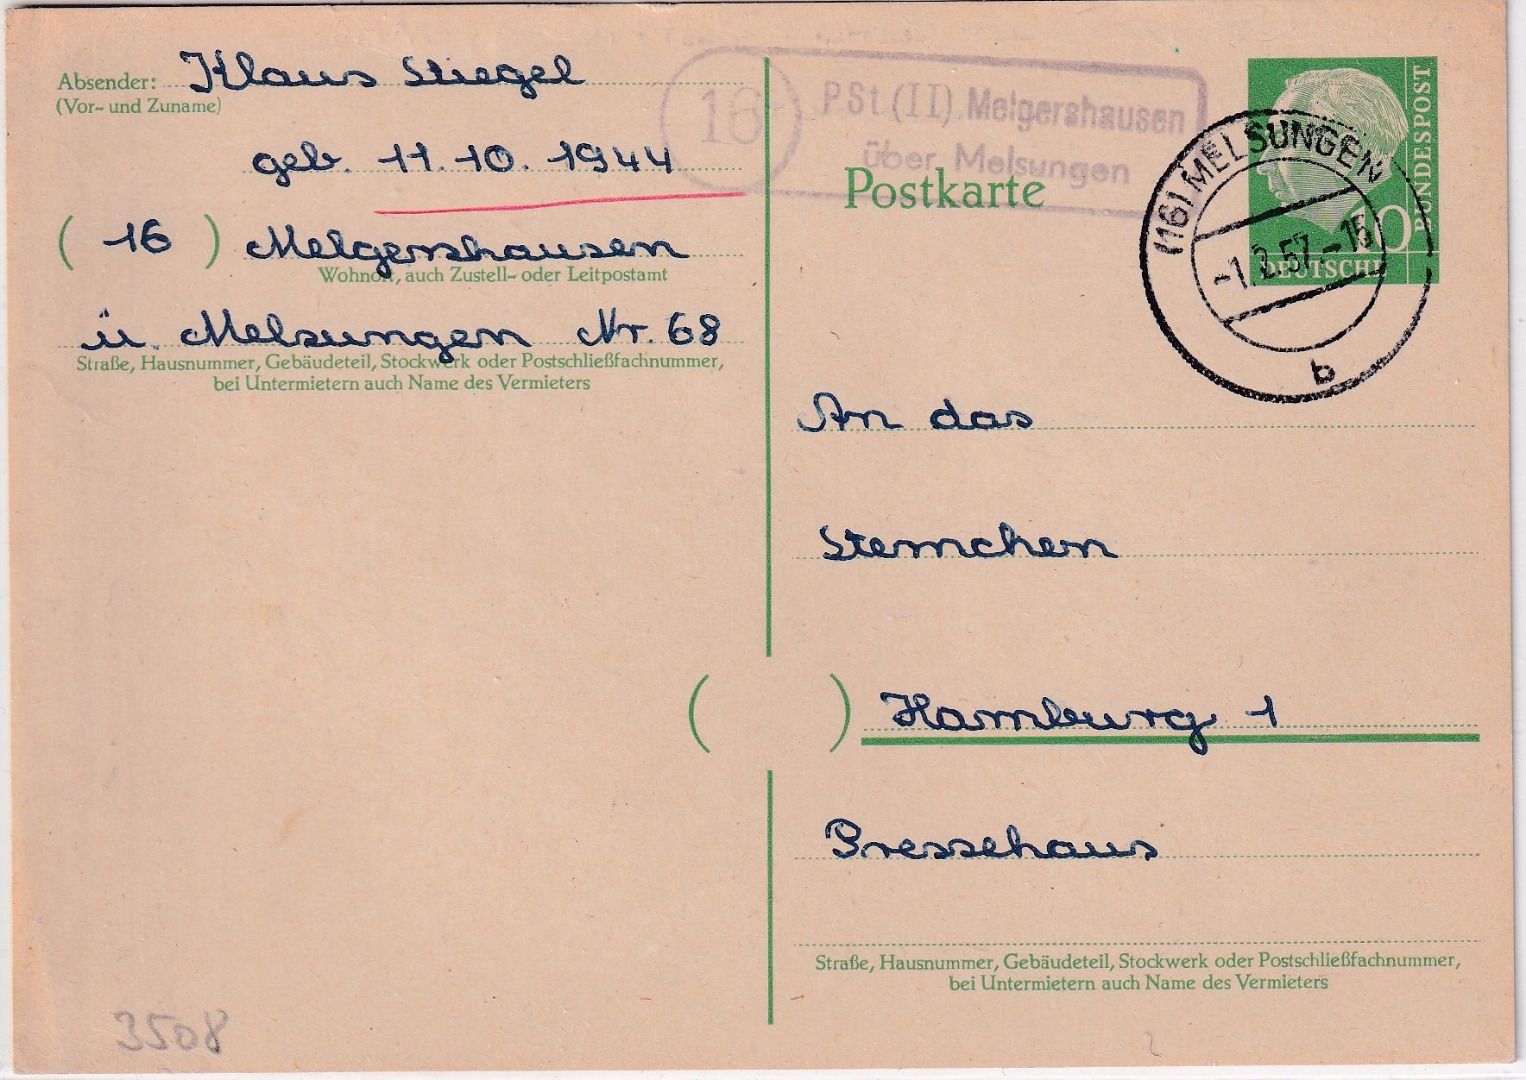 Absender: Klaus Stiegel
(Vor- und Zuname)
geb. 11.10.1944
(16) Melgershausen
Wohnort, auch Zustell- oder Leitpostamt
ü. Melsungen Nr. 68
Straße, Hausnummer, Gebäudeteil, Stockwerk oder Postschließfachnummer,
bei Untermietern auch Name des Vermieters
16
PSt.(II) Melgershausen
über Melsungen
Postkarte
DEUTSCHE
BUNDESPOST
10
(16) MELSUNGEN
-1.2.57.-15
b
An das
Sternchen
( ) Hamburg 1
Pressehaus
Straße, Hausnummer, Gebäudeteil, Stockwerk oder Postschließfachnummer,
bei Untermietern auch Name des Vermieters
3508